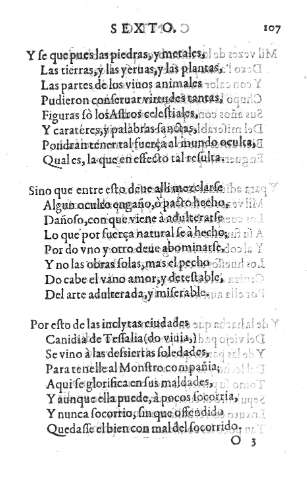 SEXTO. 107
Y se que pues las piedras, y metales,
Las tierras, y las yeruas, y las plantas,
Las partes de los viuos animales
Pudieron conseruar virtudes tantas,
Figuras só los Astros celestiales,
Y carateres, y palabras sanctas,
Pondran tener tal fuerça al mundo oculta,
Qual es, la que en effecto tal resulta.
Sino que entre esto deue alli mezclarse
Algun oculto engaño, ò pacto hecho,
Dañoso, con que viene à adulterarse
Lo que por fuerça natural se à hecho,
Por do vno y otro deue abominarse,
Y no las obras solas, mas el pecho
Do cabe el vano amor, y detestable,
Del arte adulterada, y miserable.
Por esto de las inclytas ciudades
Canidia de Tessalia (do viuia,)
Se vino à las desiertas soledades,
Para tenelle al Monstro compañia;
Aqui se glorifica en sus maldades,
Y aunque ella puede, à pocos socorria,
Y nunca socorrio, sin que offendido
Quedasse el bien con mal del socorrido.
O 3